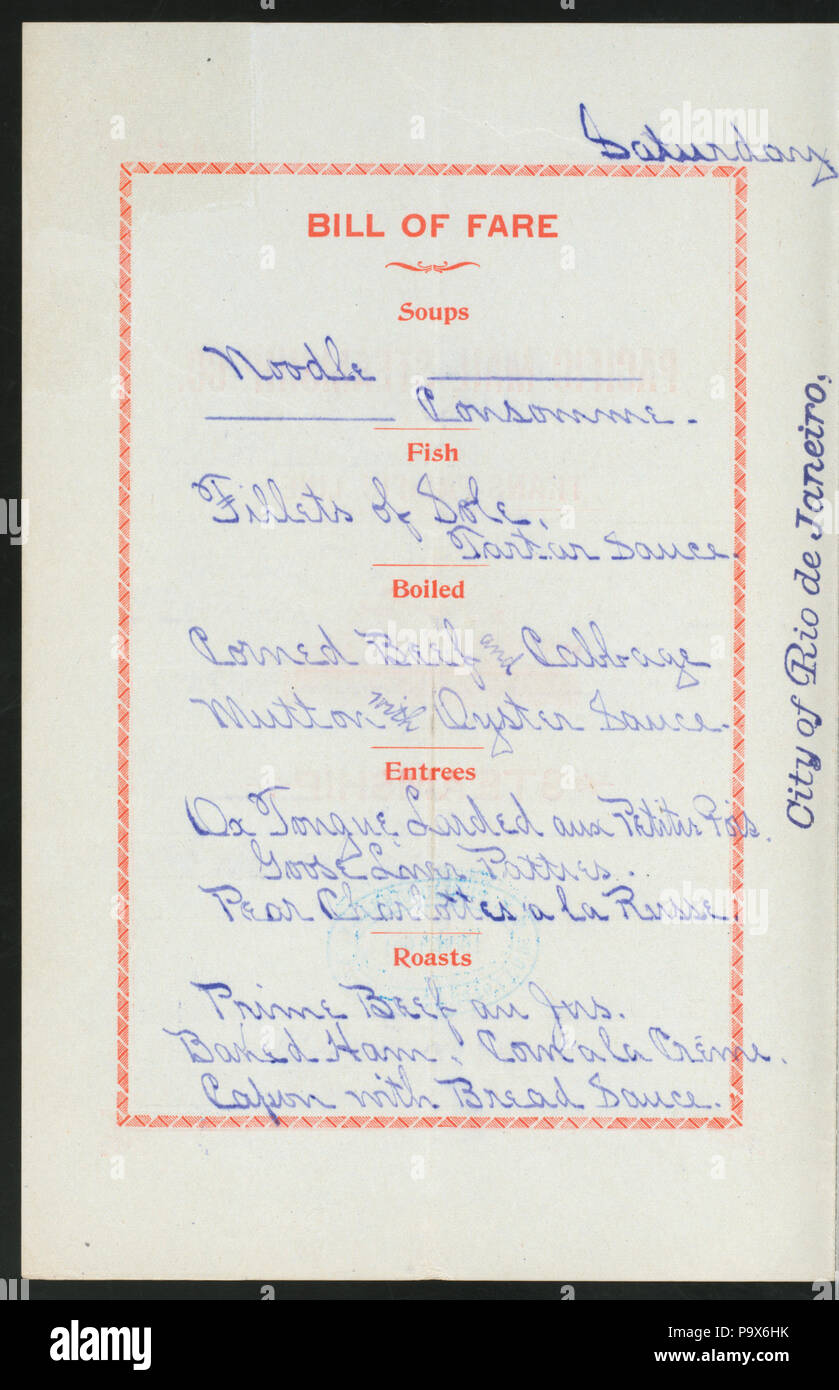 Saturday
BILL OF FARE
Soups
Noodle
Consomme.
Fish
Fillets of Sole.
Tartar Sauce.
Boiled
Corned Beef and Cabbage
Mutton with Oyster Sauce.
Entrees
Ox Tongue, Larded aux Petite Pois.
Goose Liver Patties.
Pear Charlottes a la Russe.
Roasts
Prime Beef au Jus.
Baked Ham. Corn a la Crème.
Capon with Bread Sauce.
City of Rio de Janeiro,
alamy
Image ID: P9X6HK
www.alamy.com